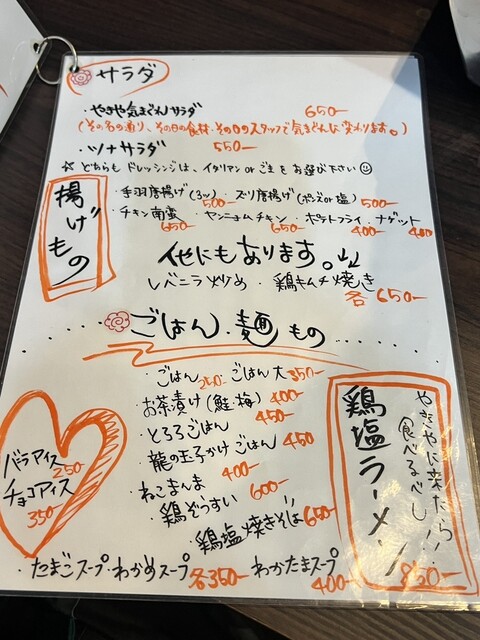 サラダ
・やきや気まぐれサラダ 650-
(その名の通り、その日の食材・その日のスタッフで気まぐれに変わります。)
・ツナサラダ 550-
☆どちらもドレッシングは、イタリアン or ごまをお選び下さい☺
揚げもの
・手羽唐揚げ(3ッ) 500- ・ズリ唐揚げ(ポン酢 or 塩) 500-
・チキン南蛮 650- ・ヤンニョムチキン 650- ・ポテトフライ 400- ・ナゲット 400
他にもあります。↓↓
レバニラ炒め ・鶏キムチ焼き
各650-
ごはん・麺もの
・ごはん 250- ごはん大 350-
・お茶漬け(鮭・梅) 400-
・とろろごはん 450-
・龍の玉子かけごはん 450
・ねこまんま 400-
・鶏ぞうすい 600-
・鶏塩焼きそば 650-
・たまごスープ・わかめスープ 各350- わかたまスープ 400-
バラアイス 250-
チョコアイス 350-
やきやに来たら!!
食べるべし
鶏塩ラーメン
850-